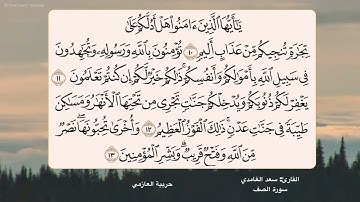 يَٰٓأَيُّهَا ٱلَّذِينَ ءَامَنُوا۟ هَلْ أَدُلُّكُمْ عَلَىٰ
تِجَٰرَةٍ تُنجِيكُم مِّنْ عَذَابٍ أَلِيمٍ ١٠ تُؤْمِنُونَ بِٱللَّهِ وَرَسُولِهِۦ وَتُجَٰهِدُونَ
فِى سَبِيلِ ٱللَّهِ بِأَمْوَٰلِكُمْ وَأَنفُسِكُمْ ۚ ذَٰلِكُمْ خَيْرٌ لَّكُمْ إِن كُنتُمْ تَعْلَمُونَ ١١
يَغْفِرْ لَكُمْ ذُنُوبَكُمْ وَيُدْخِلْكُمْ جَنَّٰتٍ تَجْرِى مِن تَحْتِهَا ٱلْأَنْهَٰرُ وَمَسَٰكِنَ
طَيِّبَةً فِى جَنَّٰتِ عَدْنٍ ۚ ذَٰلِكَ ٱلْفَوْزُ ٱلْعَظِيمُ ١٢ وَأُخْرَىٰ تُحِبُّونَهَا ۖ نَصْرٌ
مِّنَ ٱللَّهِ وَفَتْحٌ قَرِيبٌ ۗ وَبَشِّرِ ٱلْمُؤْمِنِينَ ١٣
القارئ: سعد الغامدي
سورة الصف
حربية العازمي